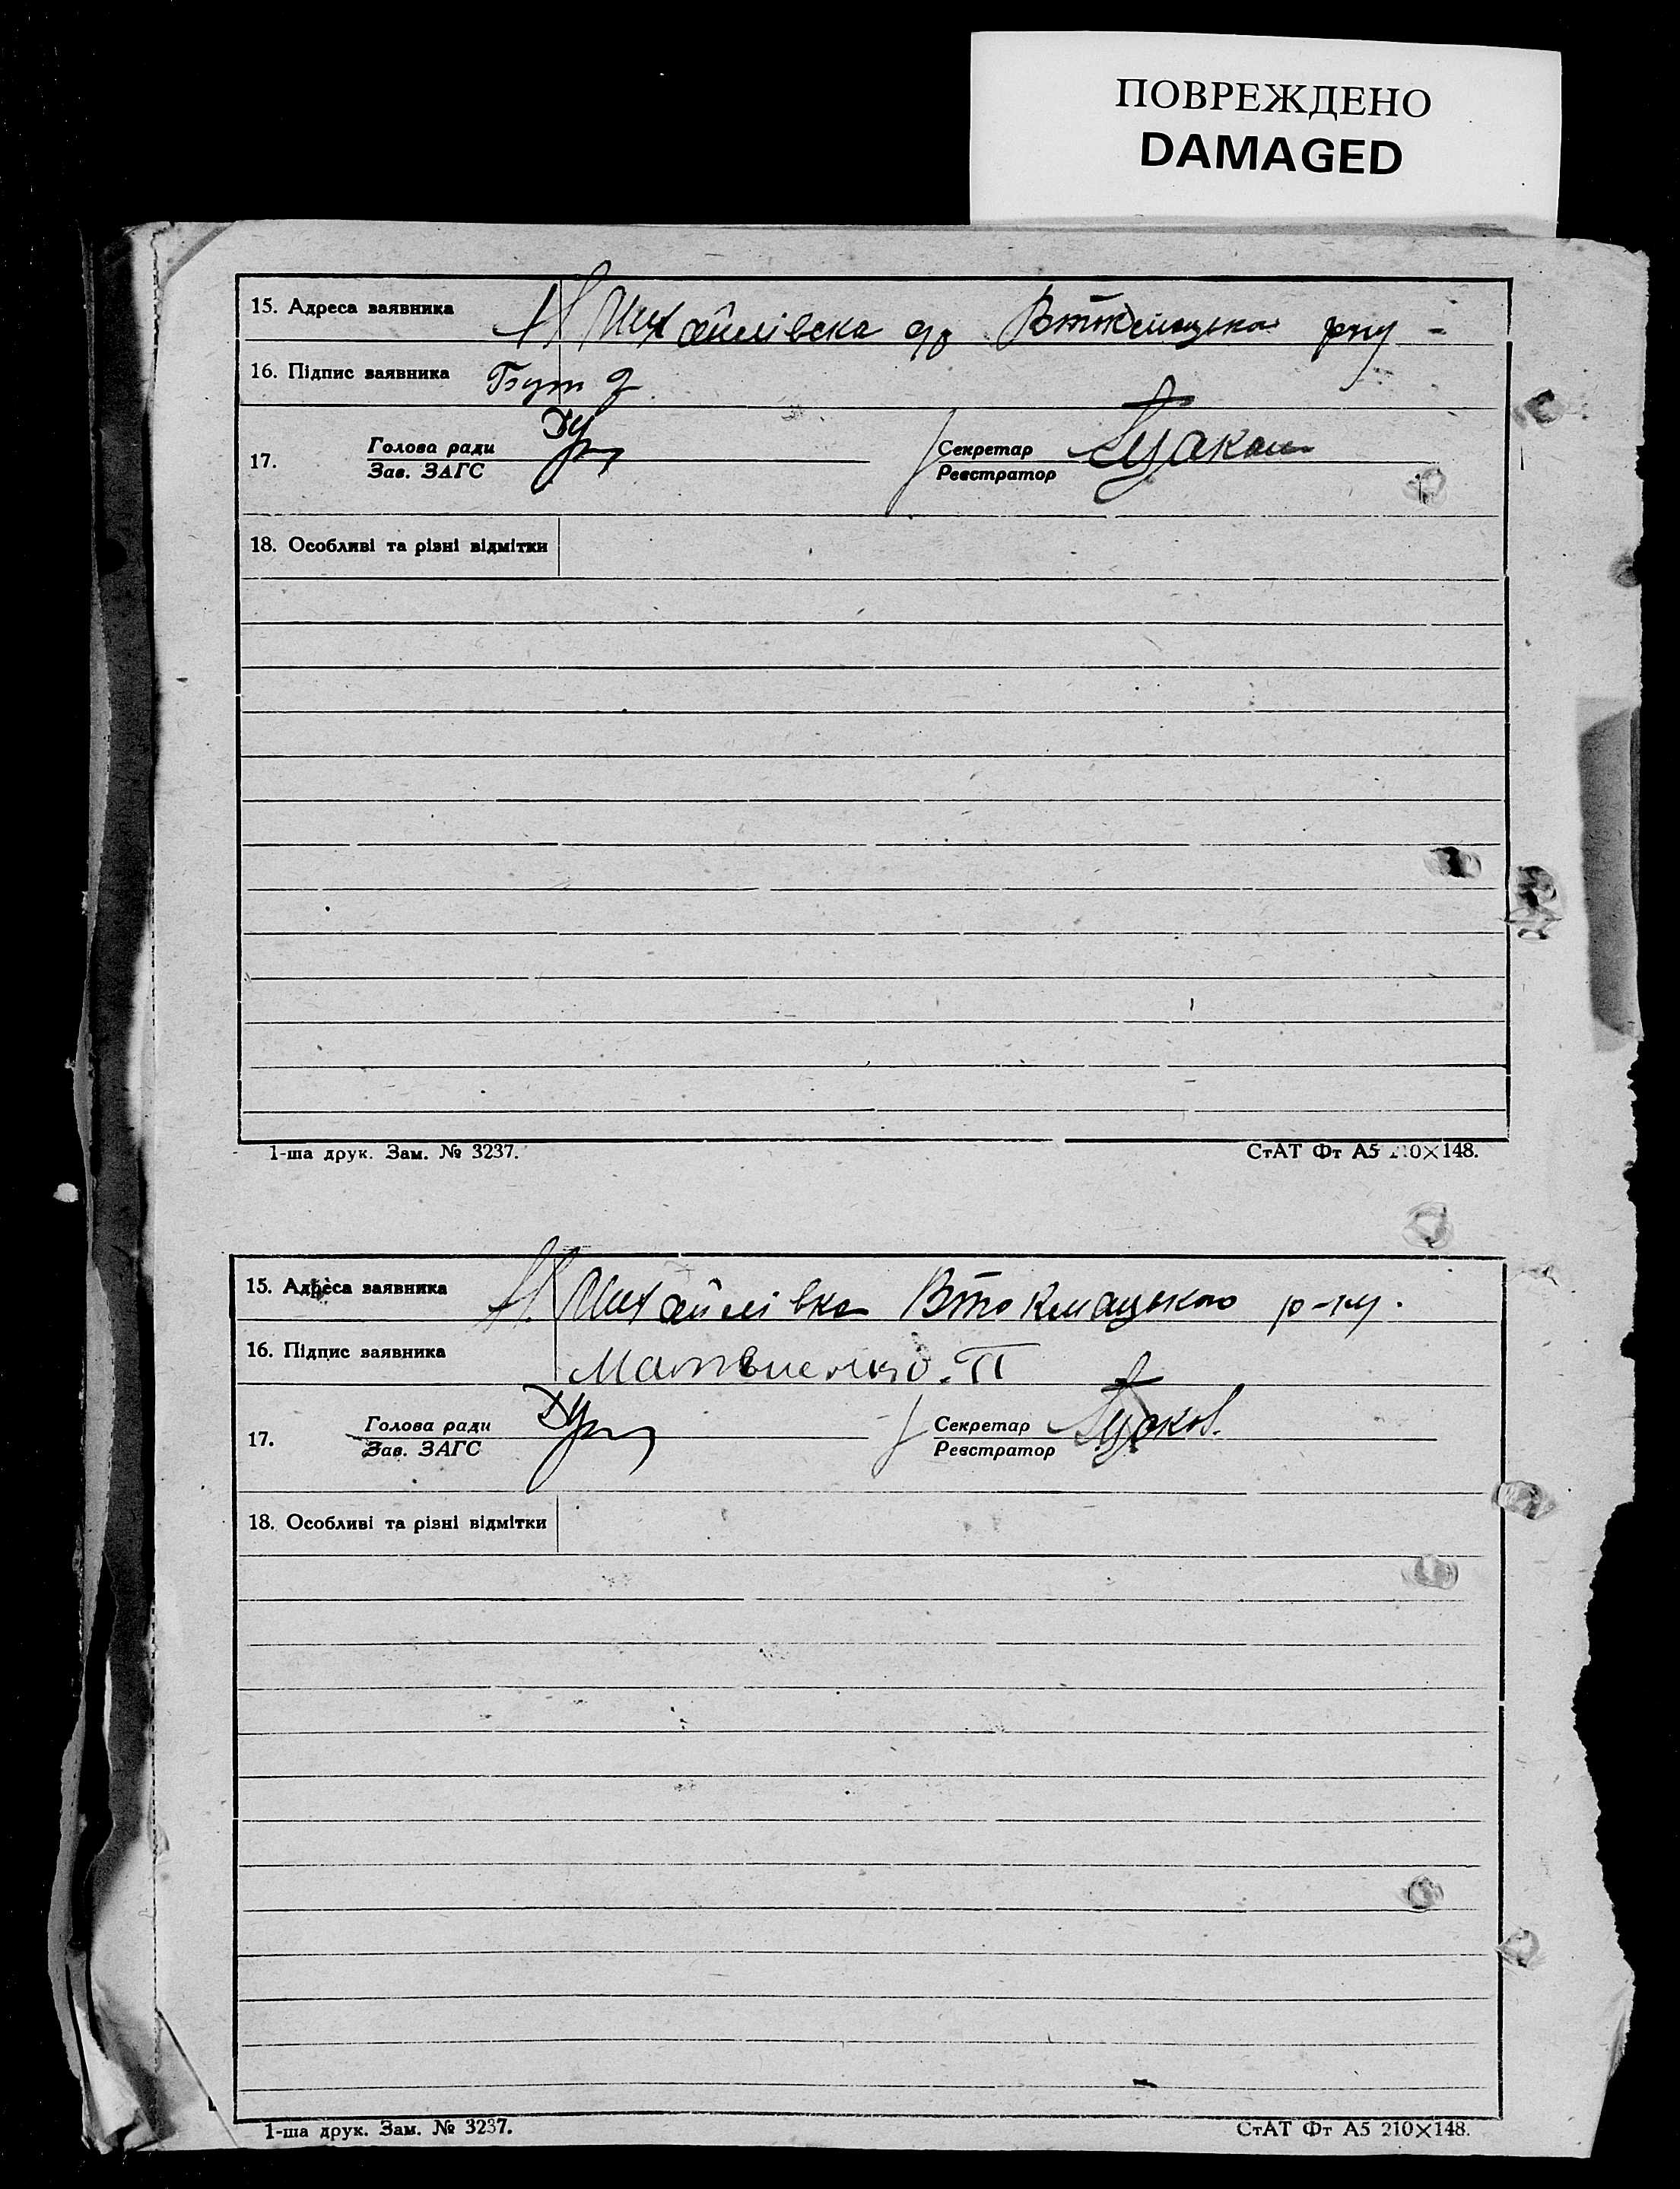 ПОВРЕЖДЕНО
DAMAGED
15. Адреса заявника Н Михайлівка Втокмацького рну -
16. Підпис заявника Бут
17. Голова ради Секретар
Зав. ЗАГС Реєстратор
18. Особливі та різні відмітки
1-ша друк. Зам. № 3237. СтАТ Фт А5 210×148.
15. Адреса заявника Н. Михайлівка Втокмацького р-ну.
16. Підпис заявника Матвиенко. П
17. Голова ради Секретар
Зав. ЗАГС Реєстратор
18. Особливі та різні відмітки
1-ша друк. Зам. № 3237. СтАТ Фт А5 210×148.